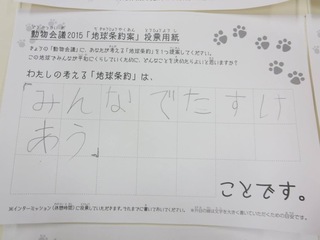 動物会議2015「地球条約案」投票用紙
きょうの「動物会議」に、あなたが考える「地球条約」を1つ提案してください。
この地球でみんなが平和にくらしていくために、どんなことを決めたらよいと思いますか?
わたしの考える「地球条約」は、
「みんなでたすけ
あう」
ことです。